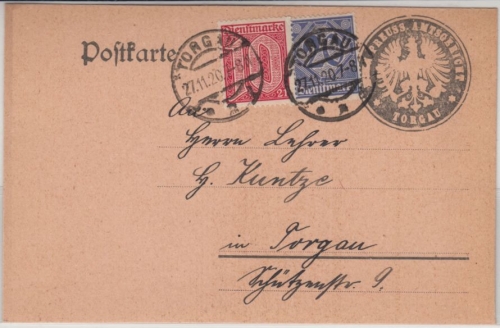 Postkarte
Dienstmarke
10
21
Dienstmarke
TORGAU
27.11.20
TORGAU
27.11.20.7-8
TORGAU
An
Herrn Lehrer
H. Kuntze
in Torgau
Schützenstr. 9.